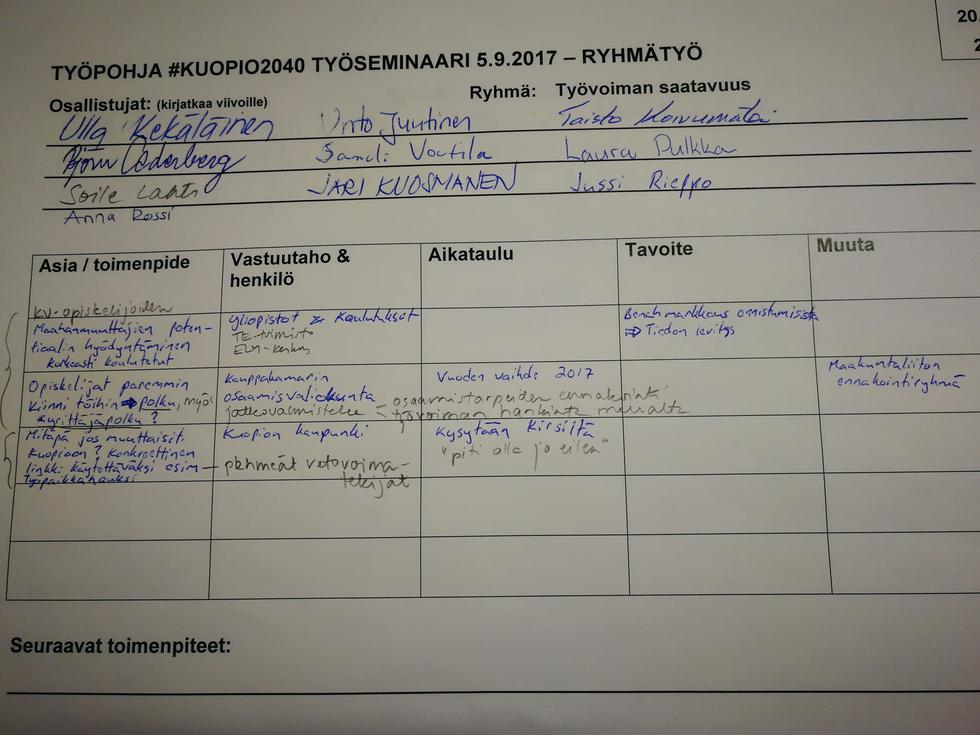 20.
2
TYÖPOHJA #KUOPIO2040 TYÖSEMINAARI 5.9.2017 – RYHMÄTYÖ
Osallistujat: (kirjatkaa viivoille)
Ryhmä: Työvoiman saatavuus
Ulla Kekäläinen Unto Juutinen Taisto Koivumäki
Björn Cederberg Sandi Voutila Laura Pulkka
Soile Lahti JARI KUOSMANEN Jussi Rieppo
Anna Rossi
Asia / toimenpide
Vastuutaho &
henkilö
Aikataulu
Tavoite
Muuta
KV-opiskelijoiden
Maahanmuuttajien poten-
tiaalin hyödyntäminen
korkeasti koulutetut
Yliopistot & koulutukset
TE-toimisto
ELY-keskus
Benchmarkkaus onnistumisista
⇒ Tiedon levitys
Opiskelijat paremmin
kiinni töihin ⇒ polku, myös
yrittäjäpolku?
Kauppakamarin
osaamisvaliokunta
jatkovalmistelee
- osaamistarpeiden ennakointi
- työvoiman hankinta muualta
Vuoden vaihde 2017
Maakuntaliiton
ennakointiryhmä
Mitäpä jos muuttaisit
Kuopioon? Konkreettinen
linkki käytettäväksi esim
Työpaikkahauksi
Kuopion kaupunki
— pehmeät vetovoima-
tekijät
Kysytään Kirsiltä
"piti olla jo eilen"
Seuraavat toimenpiteet: